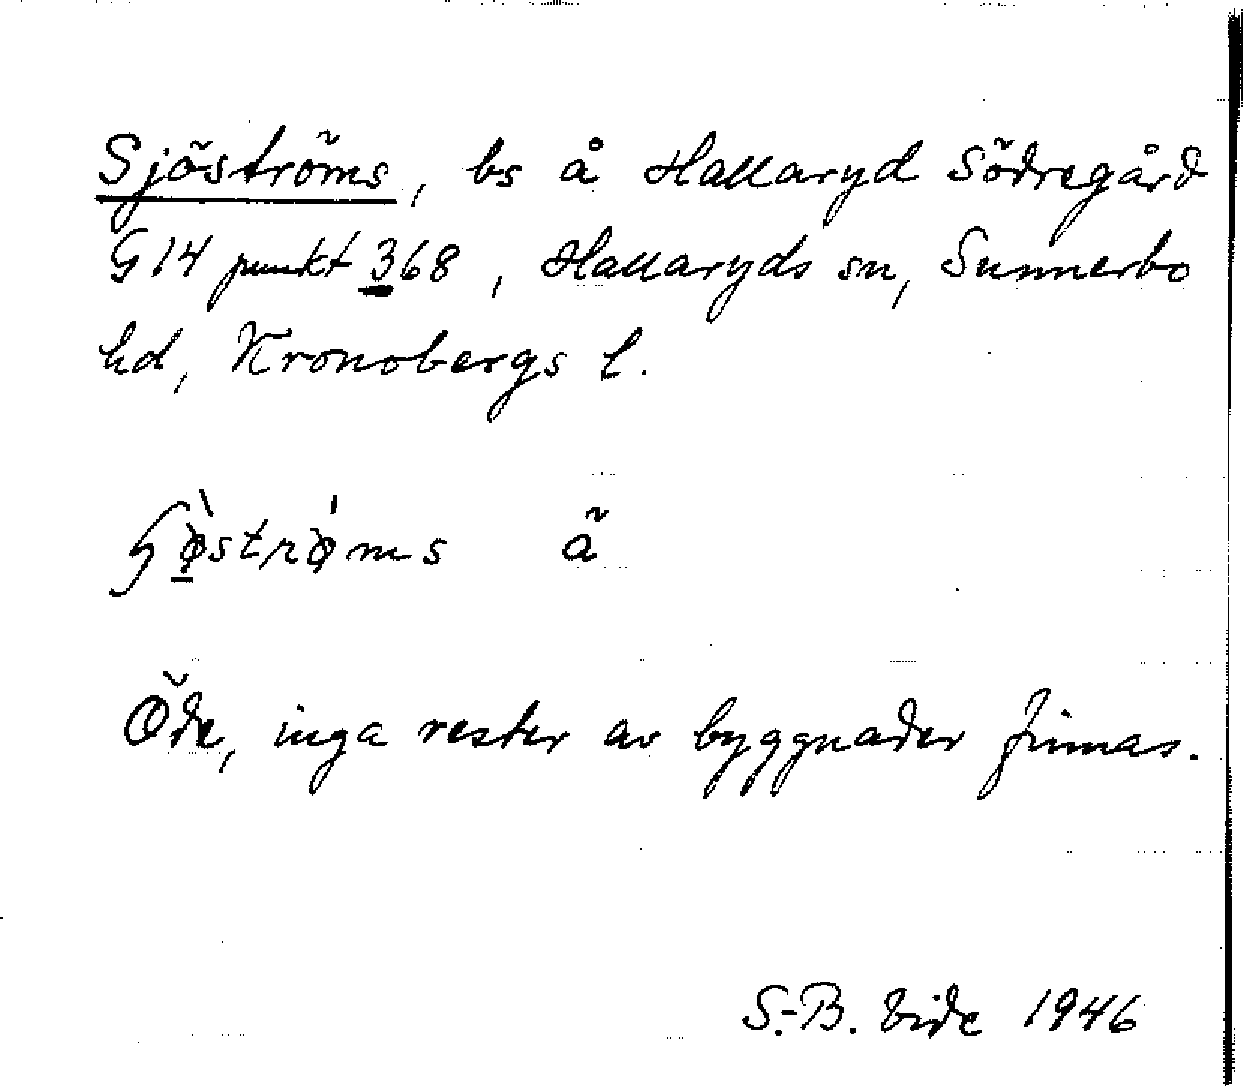 Sjöströms, bs å Hallaryd Södregård
G 14 punkt 368, Hallaryds sn, Sunnerbo
hd, Kronobergs l.
å
Öde, inga rester av byggnader finnas.
S.-B. Vide 1946